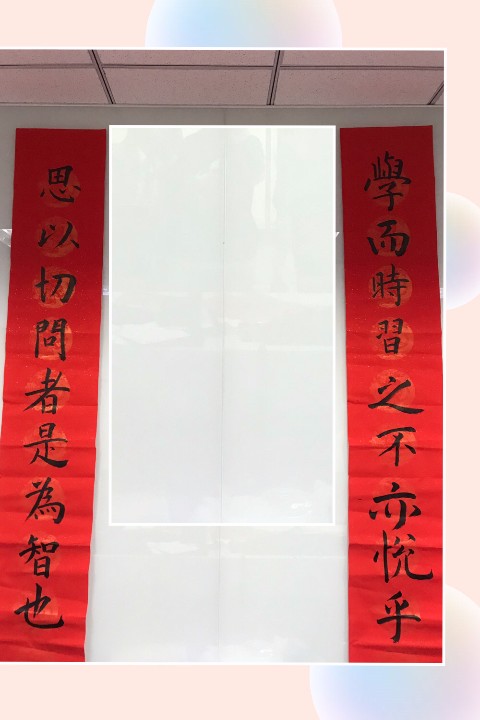 學而時習之不亦悅乎
思以切問者是為智也